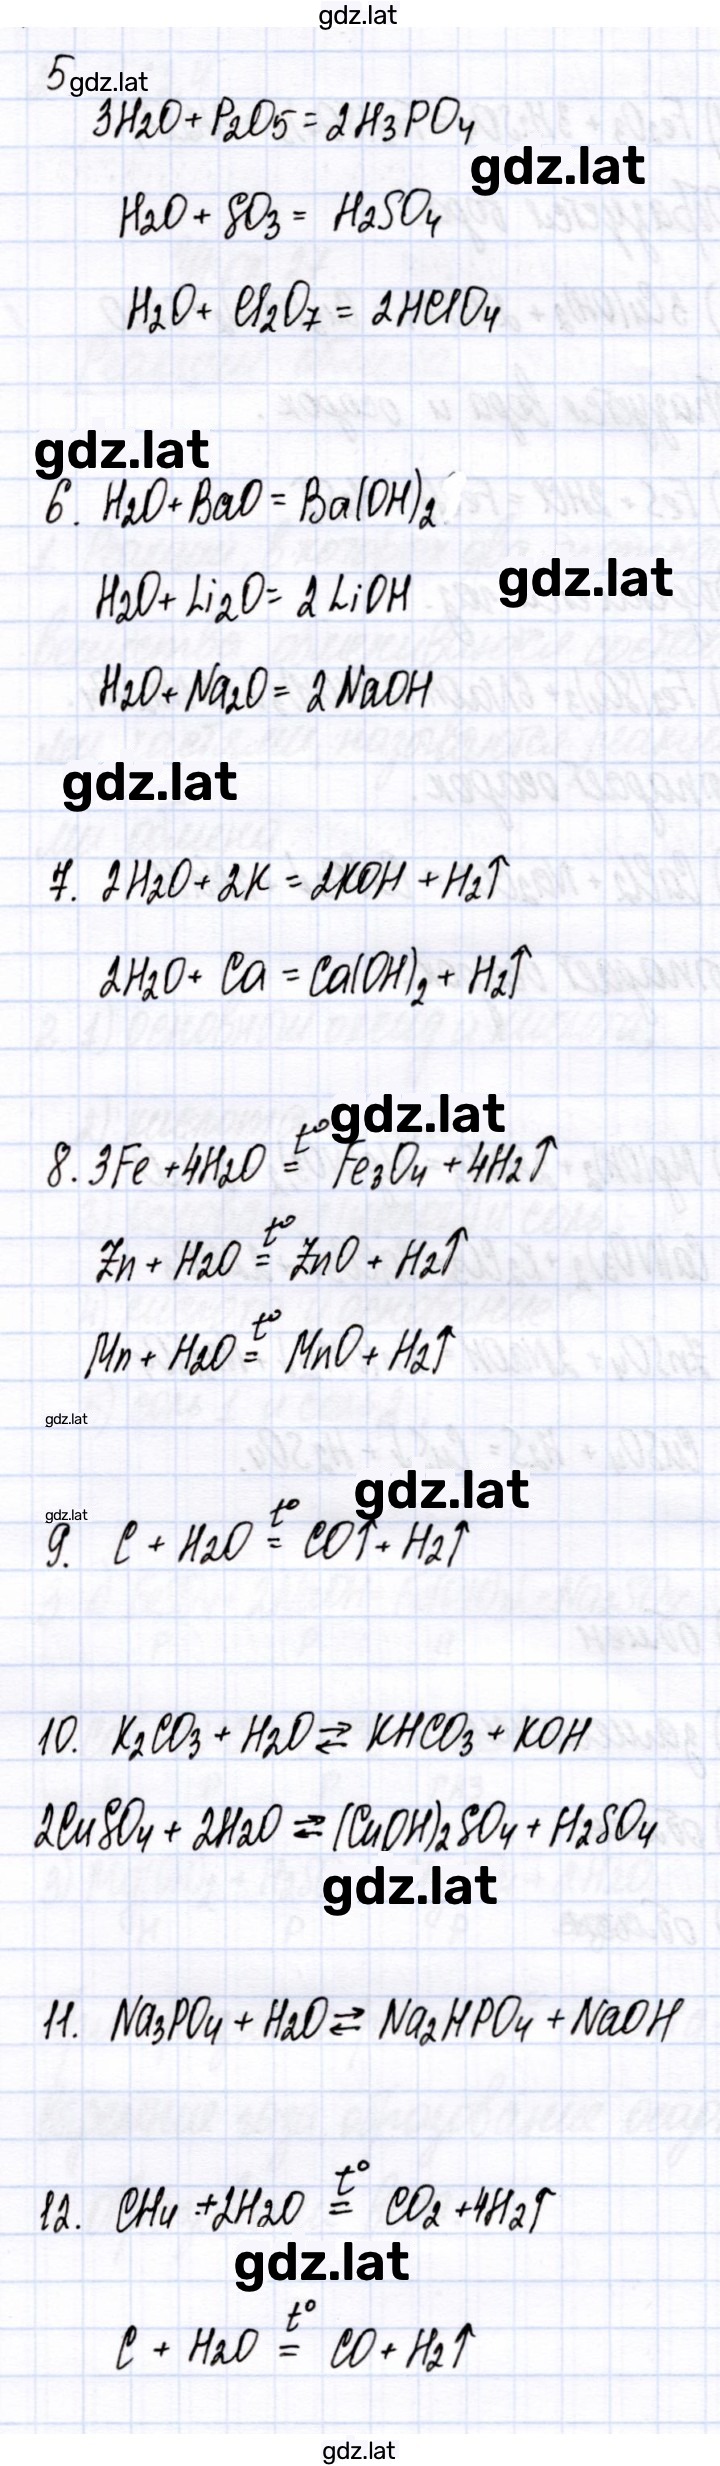 gdz.lat
5
gdz.lat
3H2O + P2O5 = 2H3PO4
gdz.lat
H2O + SO3 = H2SO4
H2O + Cl2O7 = 2HClO4
gdz.lat
6. H2O + BaO = Ba(OH)2
gdz.lat
H2O + Li2O = 2LiOH
H2O + Na2O = 2NaOH
gdz.lat
7. 2H2O + 2K = 2KOH + H2↑
2H2O + Ca = Ca(OH)2 + H2↑
gdz.lat
8. 3Fe + 4H2O t°= Fe3O4 + 4H2↑
Zn + H2O t°= ZnO + H2↑
Mn + H2O t°= MnO + H2↑
gdz.lat
gdz.lat
gdz.lat
9. C + H2O t°= CO↑ + H2↑
10. K2CO3 + H2O ⇄ KHCO3 + KOH
2CuSO4 + 2H2O ⇄ (CuOH)2SO4 + H2SO4
gdz.lat
11. Na3PO4 + H2O ⇄ Na2HPO4 + NaOH
12. CH4 + 2H2O t°= CO2 + 4H2↑
gdz.lat
C + H2O t°= CO + H2↑
gdz.lat